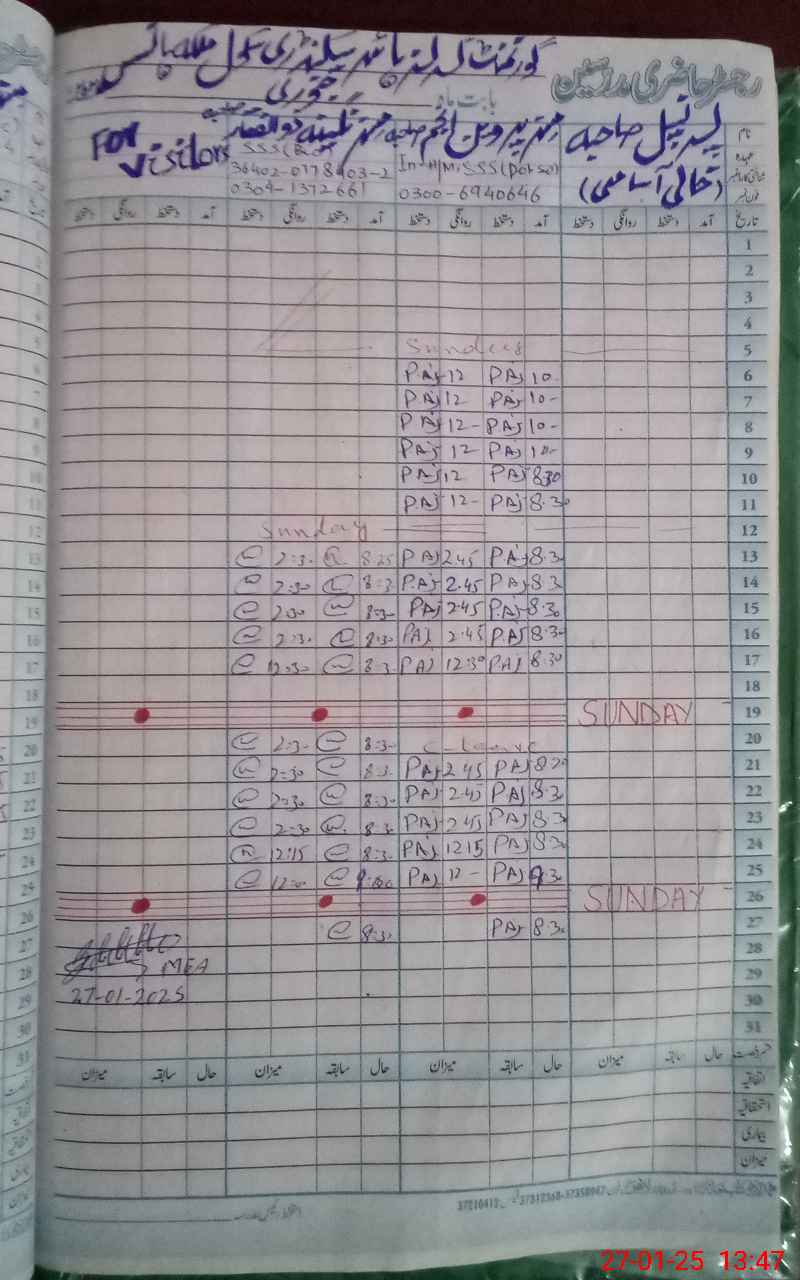 رجسٹر حاضری مدرسین
گورنمنٹ گرلز ہائر سیکنڈری سکول ملکہ ہانس
بابت ماہ جنوری
نام پرنسپل صاحبہ (خالی آسامی)
مسز پروین انجم صاحبہ
In-H/M, SSS
0300-6940646
36402-0778403-2
0304-1372661
For Visitors
تاریخ آمد دستخط روانگی دستخط آمد دستخط روانگی دستخط آمد دستخط روانگی دستخط
1
2
3
4
5
6 10- PAj 12 PAj
7 10- PAj 12 PAj
8 10- PAj 12- PAj
9 10- PAj 12- PAj
10 8.30 PAj 12 PAj
11 8.30 PAj 12- PAj
12 Sunday
13 8.30 PAj 2.45 PAj 8:25 2:30
14 8.30 PAj 2.45 PAj 8:30 2:30
15 8.30 PAj 2.45 PAj 8:30 2:30
16 8.30 PAj 2.45 PAj 8:30 2:30
17 8.30 PAj 12:30 PAj 8:30 12:30
18
19 SUNDAY
20 C-leave 8:30 2:30
21 8.30 PAj 2.45 PAj 8:30 2:30
22 8.30 PAj 2.45 PAj 8:30 2:30
23 8.30 PAj 2.45 PAj 8:30 2:30
24 8.30 PAj 12.15 PAj 8:30 12:15
25 9.30 PAj 12- PAj 9:00 12:00
26 SUNDAY
27 8.30 PAj 8:30
28 MEA
29 27-01-2025
30
31
حال سابقہ میزان حال سابقہ میزان حال سابقہ میزان حال سابقہ میزان
اتفاقیہ
استحقاقیہ
بیماری
میزان
27-01-25 13:47